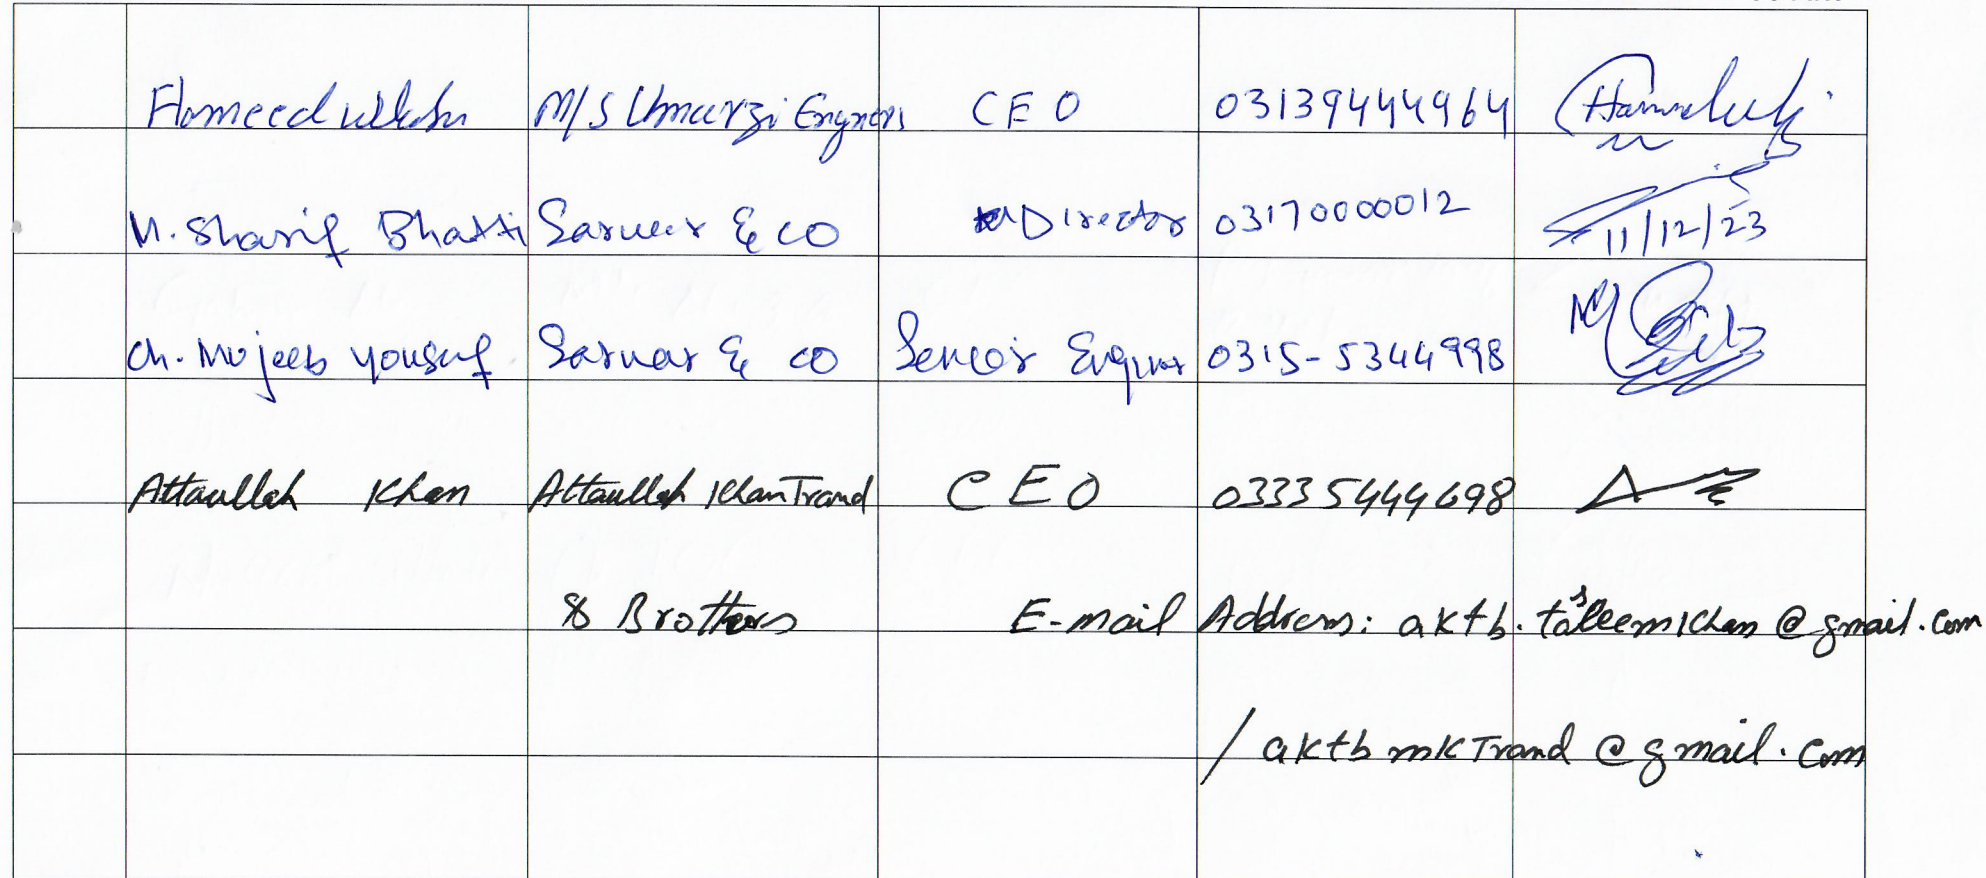 Hameedullah M/S Umarzi Engners CEO 03139444964
M. Sharif Bhatti Sarwar & co Director 03170000012
11/12/23
Ch. Mojeeb yousuf Sarwar & co Senior Enginer 0315-5344998
Attaullah Khan Attaullah Khan Trand CEO 03335444698
& Brothers E-mail Address: aktb.
@gmail.com
/ aktbmkTrand@gmail.com